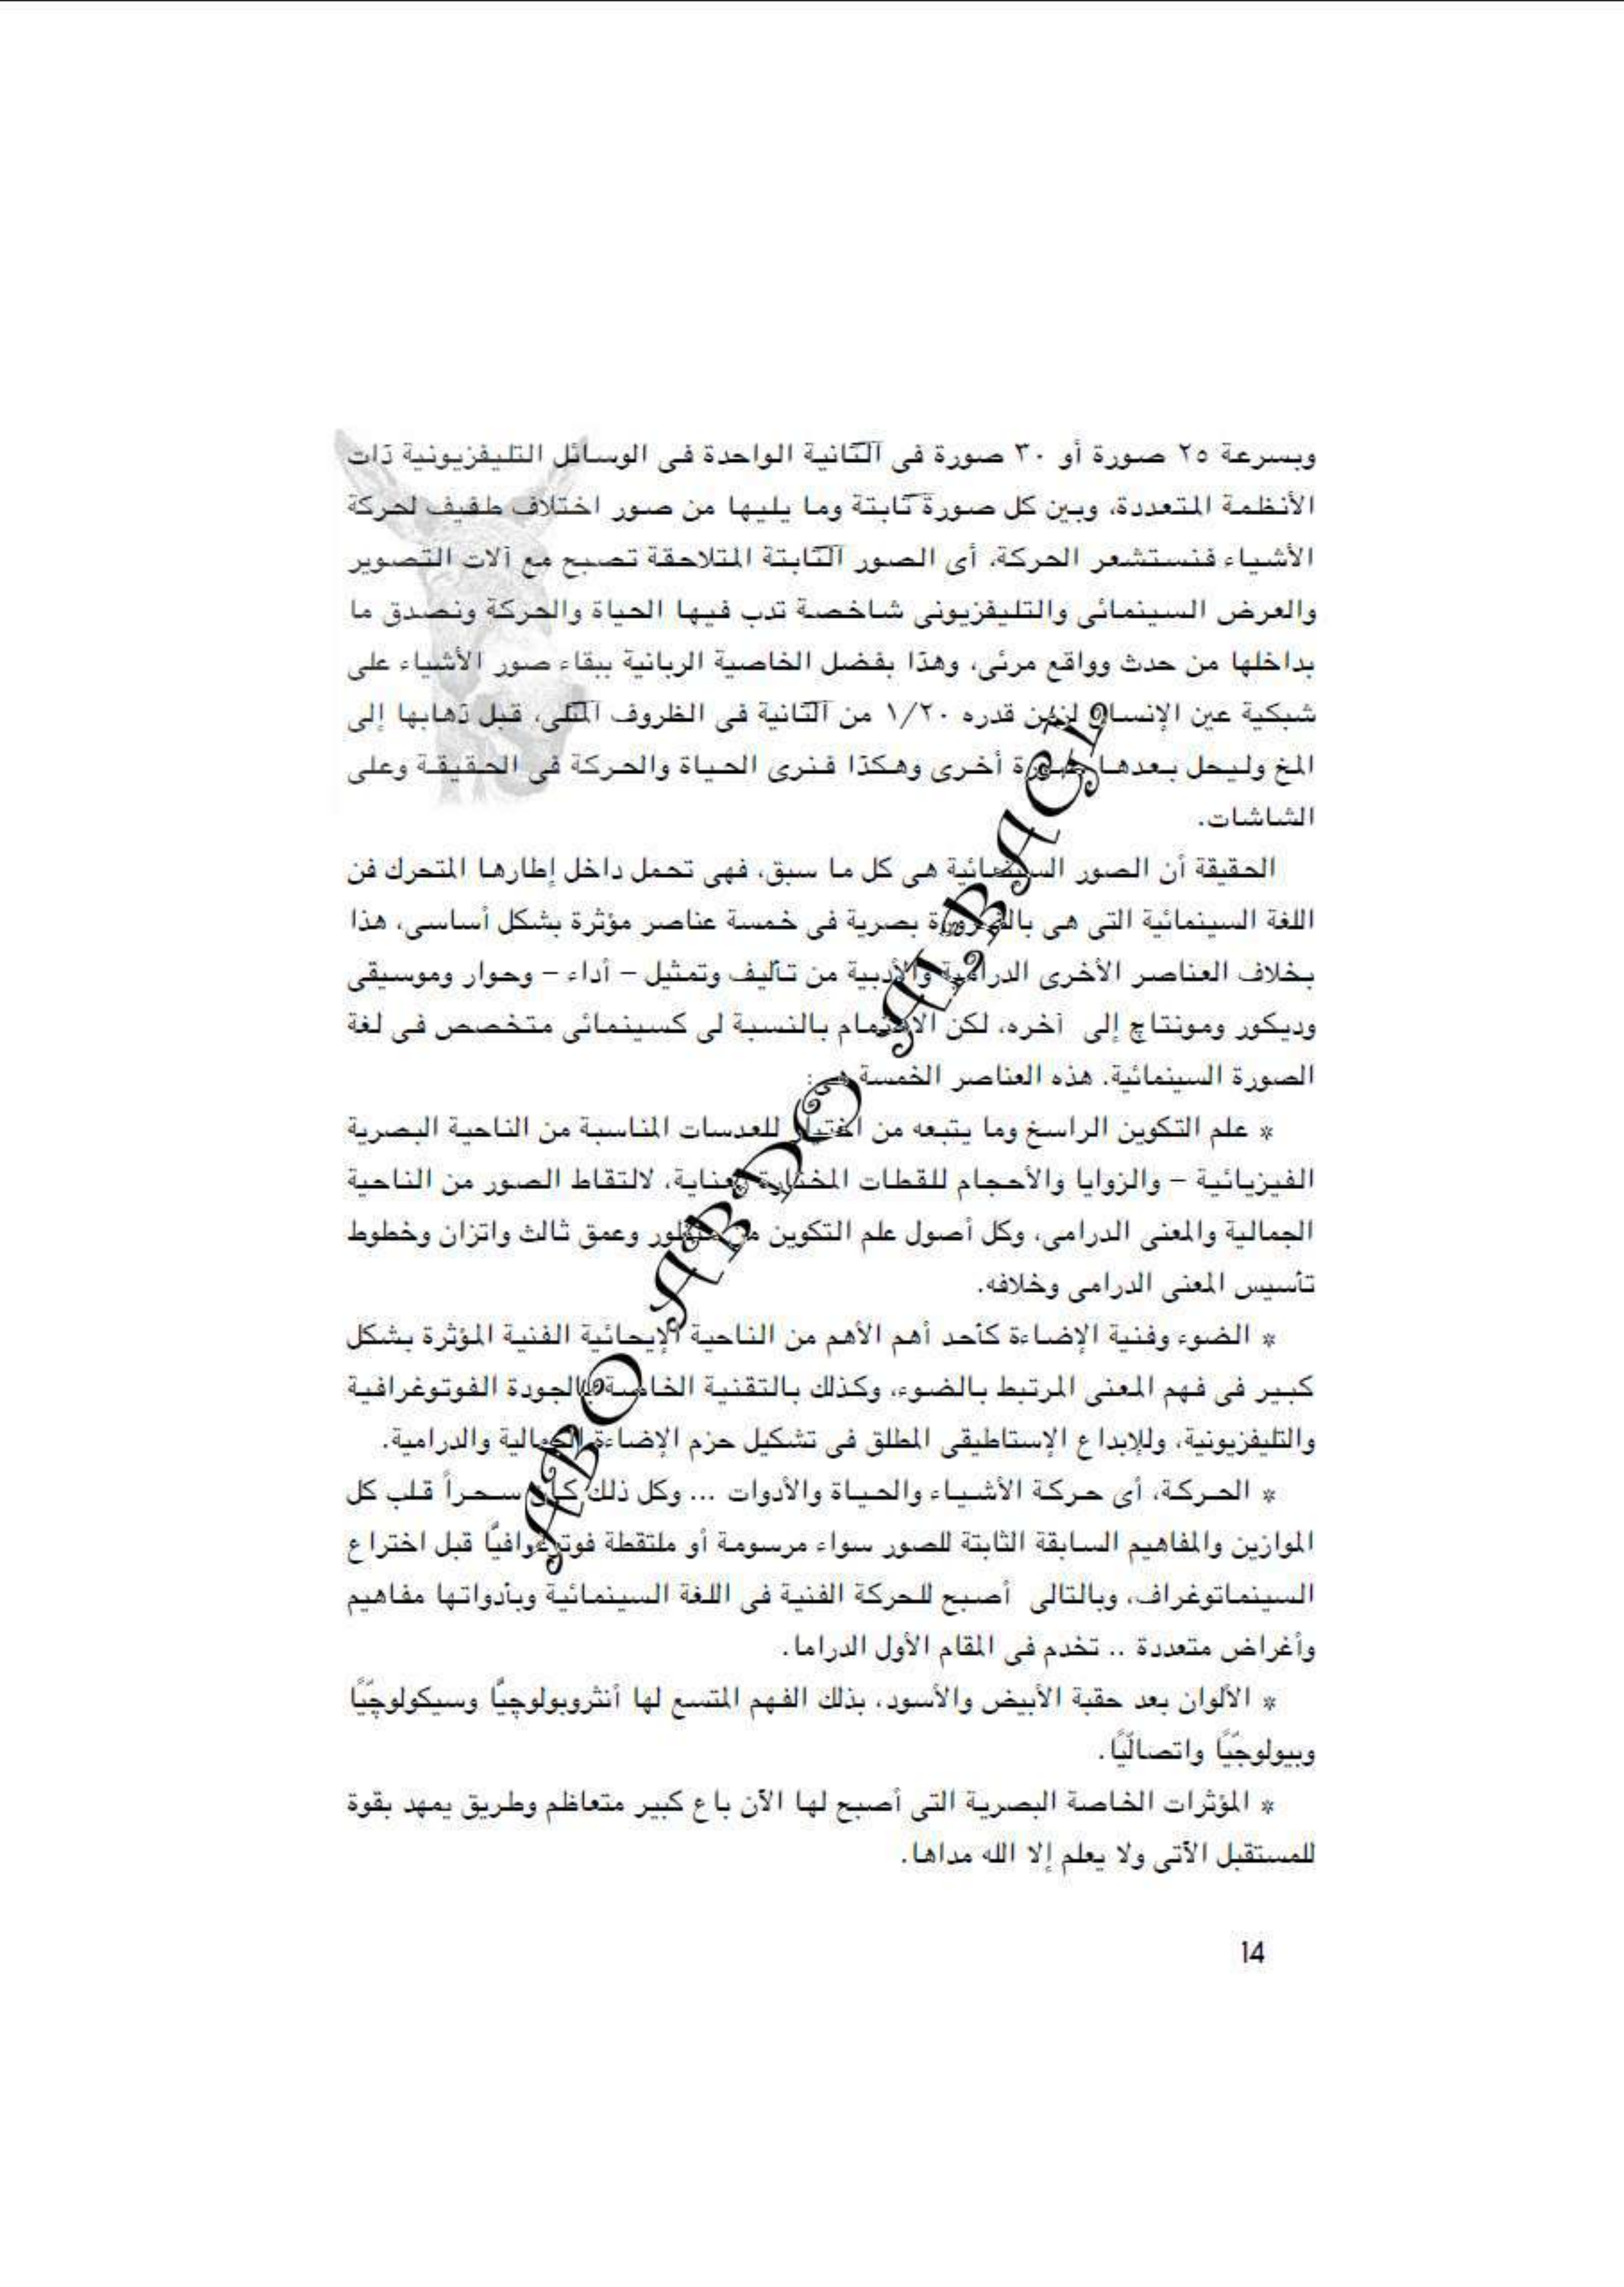 وبسرعة ٢٥ صورة أو ٣٠ صورة فى الثانية الواحدة فى الوسائل التليفزيونية ذات
الأنظمة المتعددة، وبين كل صورة ثابتة وما يليها من صور اختلاف طفيف لحركة
الأشياء فنستشعر الحركة، أى الصور الثابتة المتلاحقة تصبح مع آلات التصوير
والعرض السينمائى والتليفزيونى شاخصة تدب فيها الحياة والحركة ونصدق ما
بداخلها من حدث وواقع مرئى، وهذا بفضل الخاصية الربانية ببقاء صور الأشياء على
شبكية عين الإنسان لزمن قدره ١/٢٠ من الثانية فى الظروف المثلى، قبل ذهابها إلى
المخ وليحل بعدها صورة أخرى وهكذا فنرى الحياة والحركة فى الحقيقة وعلى
الشاشات.
الحقيقة أن الصور السينمائية هى كل ما سبق، فهى تحمل داخل إطارها المتحرك فن
اللغة السينمائية التى هى بالضرورة بصرية فى خمسة عناصر مؤثرة بشكل أساسى، هذا
بخلاف العناصر الأخرى الدرامية والأدبية من تأليف وتمثيل – أداء – وحوار وموسيقى
وديكور ومونتاچ إلى آخره، لكن الاهتمام بالنسبة لى كسينمائى متخصص فى لغة
الصورة السينمائية. هذه العناصر الخمسة هى:
* علم التكوين الراسخ وما يتبعه من اختيار للعدسات المناسبة من الناحية البصرية
الفيزيائية – والزوايا والأحجام للقطات المختارة بعناية، لالتقاط الصور من الناحية
الجمالية والمعنى الدرامى، وكل أصول علم التكوين من منظور وعمق ثالث واتزان وخطوط
تأسيس المعنى الدرامى وخلافه.
* الضوء وفنية الإضاءة كأحد أهم الأهم من الناحية الإيحائية الفنية المؤثرة بشكل
كبير فى فهم المعنى المرتبط بالضوء، وكذلك بالتقنية الخاصة بالجودة الفوتوغرافية
والتليفزيونية، وللإبداع الإستاطيقى المطلق فى تشكيل حزم الإضاءة الجمالية والدرامية.
* الحركة، أى حركة الأشياء والحياة والأدوات ... وكل ذلك كان سحراً قلب كل
الموازين والمفاهيم السابقة الثابتة للصور سواء مرسومة أو ملتقطة فوتوغرافيًا قبل اختراع
السينماتوغراف، وبالتالى أصبح للحركة الفنية فى اللغة السينمائية وبأدواتها مفاهيم
وأغراض متعددة .. تخدم فى المقام الأول الدراما.
* الألوان بعد حقبة الأبيض والأسود، بذلك الفهم المتسع لها أنثروبولوچيًّا وسيكولوچيًّا
وبيولوجيًّا واتصاليًّا.
* المؤثرات الخاصة البصرية التى أصبح لها الآن باع كبير متعاظم وطريق يمهد بقوة
للمستقبل الآتى ولا يعلم إلا الله مداها.
14
ABO ABDO ALBAGL